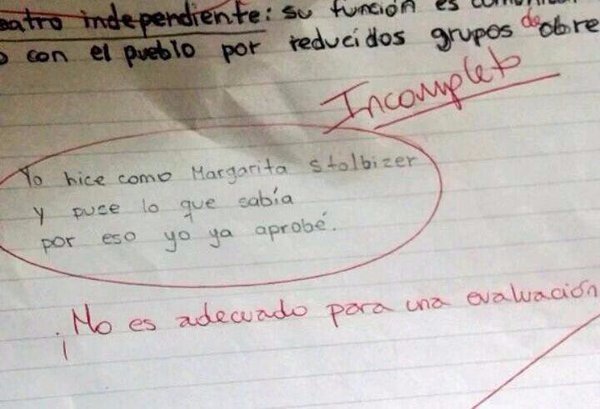 eatro independiente: su función es comunicar
o con el pueblo por reducidos grupos de obre
Incompleto
Yo hice como Margarita Stolbizer
y puce lo que sabía
por eso yo ya aprobé.
¡No es adecuado para una evaluación